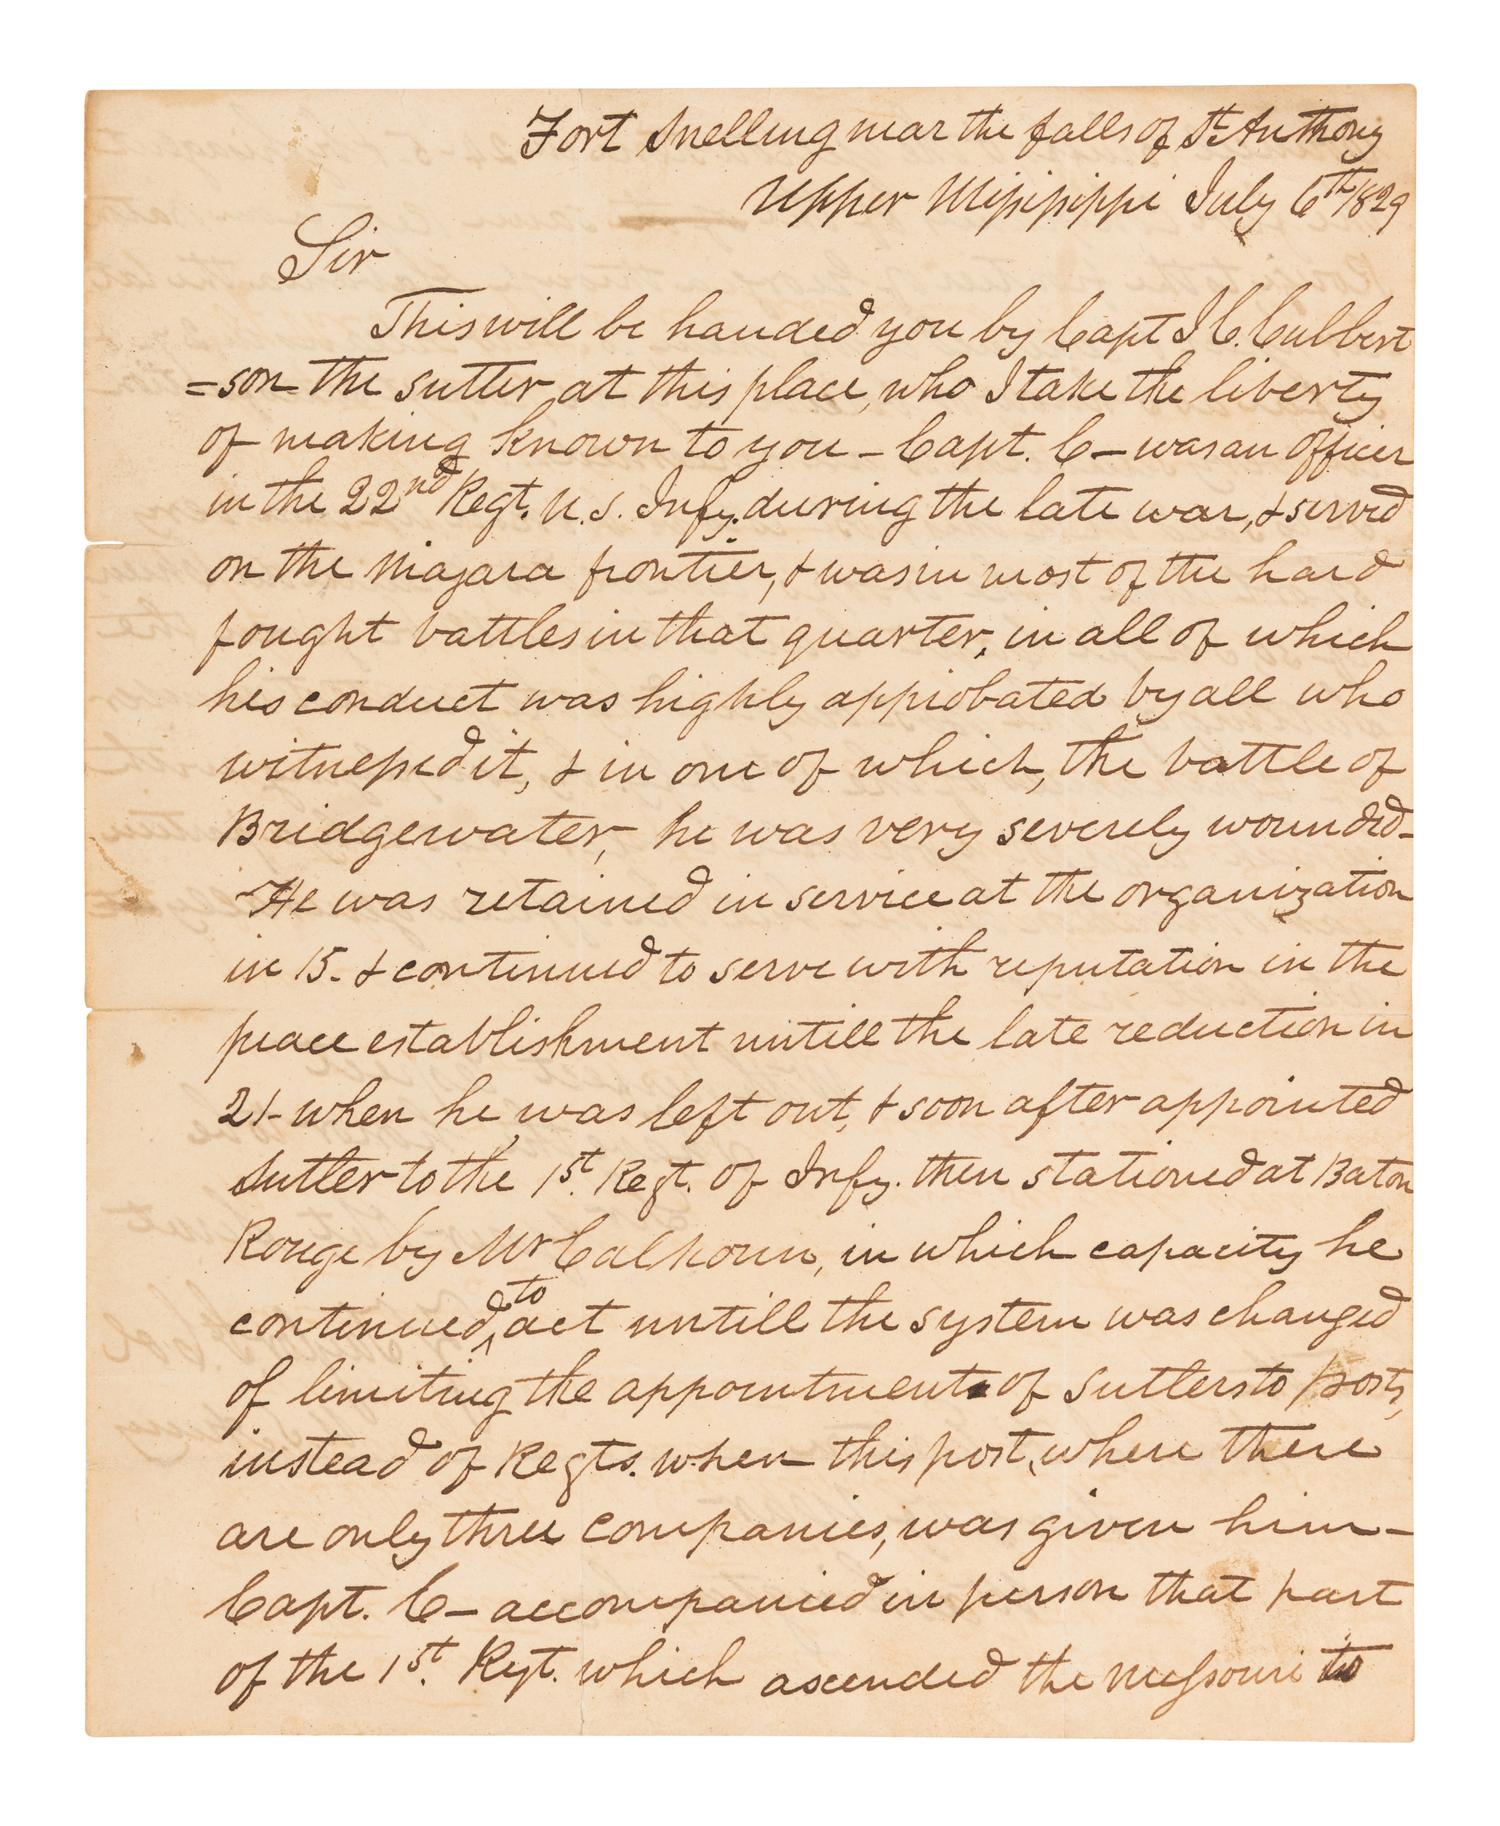 Fort Snelling near the falls of St. Anthony
Upper Mississippi July 6th 1829
Sir
This will be handed you by Capt J C. Culbert
=son the sutler at this place, who I take the liberty
of making known to you - Capt. C - was an officer
in the 22nd Regt. U.S. Infy. during the late war, & served
on the Niagara frontier, & was in most of the hard
fought battles in that quarter, in all of which
his conduct was highly approbated by all who
witnessed it, & in one of which, the battle of
Bridgewater, he was very severely wounded -
He was retained in service at the organization
in 15. & continued to serve with reputation in the
peace establishment untill the late reduction in
21 - when he was left out, & soon after appointed
Sutler to the 1st. Regt. of Infy. then stationed at Baton
Rouge by Mr Calhoun, in which capacity he
continued to act untill the system was changed
of limiting the appointment of Sutlers to posts,
instead of Regts. when this post, where there
are only three companies, was given him -
Capt. C - accompanied in person that part
of the 1st. Regt. which ascended the Missouri to